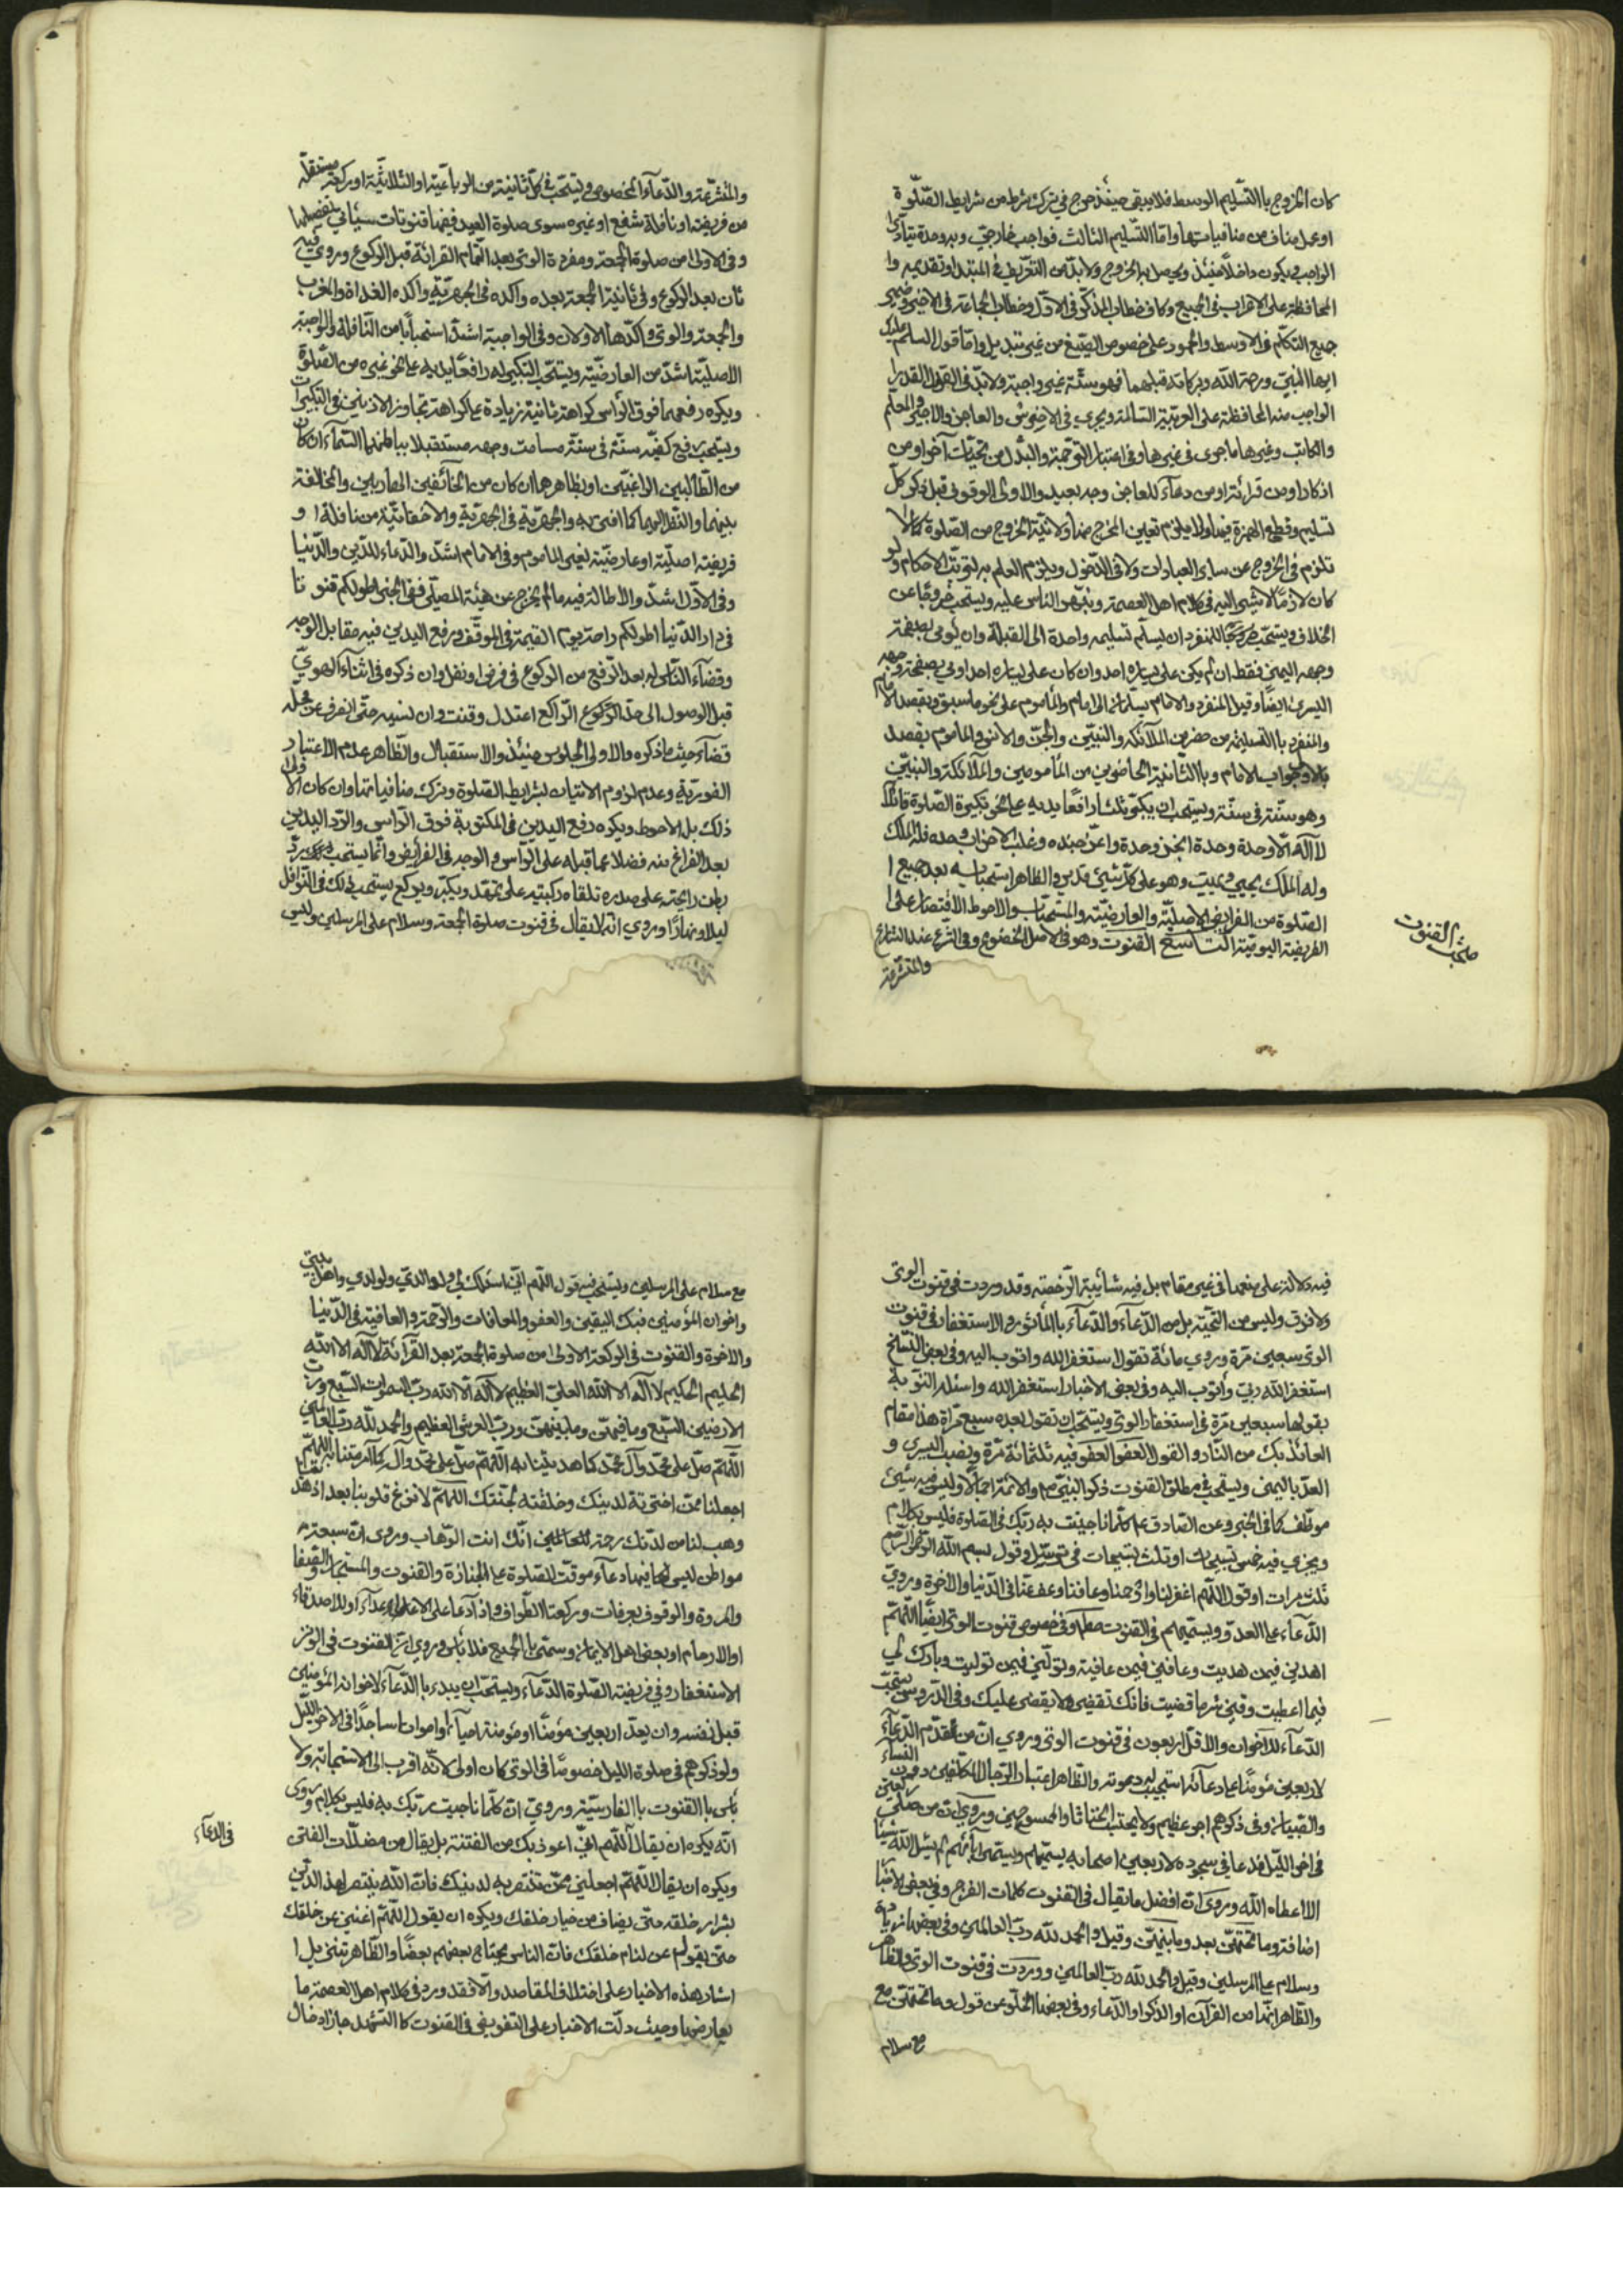 كان الخروج باالتسليم الوسط فلا يبقى حينئذ حرج في ترك شرط من شرايط الصّلوة
او عمل مناف من منافياتها وامّا التّسليم الثالث فواجب خارجيّ وبه وحده يتأدّى
الواجب فيكون داخلاً حينئذ ويحصل به الخروج ولا بدّ من التعريف في المبتدا وتقديمه وا
لمحافظة على الاعراب في الجميع وكاف خطاب المذكّر في الاوّل وخطاب الجماعة في الاخير وضمير
جميع التكلّم في الاوسط والجمود على خصوص الصّيغ من غير تبديل وامّا قول السلام عليك
ايها النبيّ ورحمة الله وبركاته قبلهما فهو سنّة غير واجبة ولا بدّ في القول القدر ا
الواجب منه المحافظة على العربيّة السّالمة ويجري في الاخرس والعاجز والاجير والمعلّم
والكاتب وغيرها ما جرى في غيرها وفي اعتبار التّرجمة والبدل من تحيّات آخر او من
اذكار او من قرائة او من دعآء للعاجز وجه بعيد والاولى الوقوف قبل ذكر كلّ
تسليم وقطع الهمزة فيها ولا يلزم تعيين المخرج منها ولا نيّة الخروج من الصّلوة كما لا
تلزم في الخروج عن ساير العبادات ولا في الدّخول ويلزم العلم به لترتّب الاحكام ولو
كان لازمًا لاشير اليه في كلام اهل العصمة ونبّهوا النّاس عليه ويستحب خروجًا عن
الخلاف ويستحبّ للمنفرد ان يسلّم تسليمه واحدة الى القبلة وان يُومي بصفحة
وجهه اليمنى فقط ان لم يكن على يساره احد وان كان على يساره احد اومى بصفحة وجهه
اليسرى ايضًا وقيل المنفرد والامام يسلّمان الى امام والمأموم على نحو ما سبق ويقصد الامام
والمنفرد باالتسليمة من حضر من الملآئكه والنبيّين والجنّ والانس والمأموم يقصد
بالاولى جواب الامام وباالثّانية الحاضرين من المأمومين والملآئكة والنبيّين
وهو سنّة في سنّة ويستحب ان يكبّر ثلث رافعًا يديه على نحو تكبيرة الصّلوة قائلاً
لا آله الّا وحدة وحدة انجز وحدة واعزّ جنده وغلب الاحزاب وحده فله الملك
وله الملك يحيي ويميت وهو على كلّ شيئ قدير والظاهر استحبابه بعد جميع ا
الصّلوة من الفرايض الاصليّة والعارضيّة والمستحبّات والاحوط الاقتصار على ا
الفريضة اليوميّة التاسع القنوت وهو في الاصل الخضوع وفي الشّرع عند الشارع
والمتشرّعة
مبحث القنوت
والمتشرّعة والدّعآء المخصوص ويستحبّ في كلّ ثانية من الرباعيّة او الثلاثيّة او ركعة مستقلّة
من فريضة او نافلة شفع او غيره سوى صلوة العيد ففيها قنوتات سيأتي تفصيلها
وفي الاولى من صلوة الجمعة ومفردة الوتر بعد اتمام القرائة قبل الركوع وروي فيه
ثان بعد الركوع وفي ثانية الجمعة بعده وآكده في الجهريّة وآكده الغداة والمغرب
والجمعة والوتر وآكدّها الاولان وفي الواجبة اشدّ استحبابًا من النّافلة والواجبة
الاصليّة اشدّ من العارضيّة ويستحبّ التكبير له رافعًا يديه على نحو غيره من الصّلوة
ويكره رفعهما فوق الرأس كراهة ثانية زيادة على كراهة تجاوز الاذنين في التكبيرات
ويستحبّ رفع كفّيه سنّة في سنّة مسامت وجهه مستقبلا بباطنهما السّمآء ان كان
من الطّالبين الراغبين او بظاهرهما ان كان من الخآئفين الهاربين والمخالفة
بينهما والنّظر اليهما كما افتى به والجهريّة في الجهريّة والاخفاتيّة من نافلة ا و
فريضة اصليّة او عارضيّة لغير الماموم وفي الامام اشدّ والدّعاء للدّين والدّنيا
وفي الاوّل اشدّ والاطالة فيه ما لم يخرج عن هيئة المصلّي ففي الخبر اطولكم قنوتا
في دار الدّنيا اطولكم راحة يوم القيمة في الموقف ورفع اليدين فيه مقابل الوجه
وقضآء النّاسي له بعد الرّفع من الركوع في فرض او نفل وان ذكره في اثناء الهويّ
قبل الوصول الى حدّ الركوع الرّاكع اعتدل وقنت وان نسيه حتّى انصرف عن محلّه
قضآه حيث ما ذكره والاولى الجلوس حينئذ والاستقبال والظاهر عدم الاعتبار
الفوريّة وعدم لزوم الاتيان بشرايط الصّلوة وترك منافياتها وان كان الاولى
ذلك بل الاحوط ويكره رفع اليدين في المكتوبة فوق الرّاس والرّد اليدين
بعد الفراغ منه فضلا عما قبله على الرّاس والوجه في الفرايض وانّما يستحب ردّ
بطن راحته على صدره تلقاه ركبتيه على تمهّد ويكبّر ويركع يستحب ذلك في النّوافل
ليلا ونهارًا وروي انّه لا يقال في قنوت صلوة الجمعة وسلام على المرسلين وليس
فيه دلالة على منعها في غير مقام بل فيه شآئبة الرّخصة وقد وردت في قنوت الوتر
ولا فرق وليس من التّحيّة بل من الدّعآء والدّعآء باالمأثور والاستغفار في قنوت
الوتر سبعين مرّة وروي مائة تقول استغفر الله واتوب اليه وفي بعض النّسخ
استغفر الله ربّي وأتوب اليه وفي بعض الاخبار استغفر الله واسئله التوبة
يقولها سبعين مرّة في استغفار الوتر ويستحبّ ان تقول بعده سبع مرّاة هذا مقام
العائذ بك من النّار والقول العفو العفو فيه ثلثمائة مرّة ونصب اليسرى و
العدّ باليمنى ويستحبّ في مطلق القنوت ذكر النبيّ والائمّة اجمالاً وليس فيه شيئ
موظّف كما في الخبر وعن الصّادق كلّما ناجيت به ربّك في الصّلوة فليس بكلام
ويجزي فيه خمس تسبيحات او ثلث تسبيحات في ترسّل وقول بسم الله الرّحمن الرّحيم
ثلث مرات او قول اللّهم اغفر لنا وارحمنا وعافنا وعف عنّا في الدّنيا والاخرة وروي
الدّعآء على العدوّ ويسمّيهم في القنوت مطلقا وفي خصوص قنوت الوتر ايضًا اللّهمّ
اهدني فيمن هديت وعافني فيمن عافية وتولّني فيمن توليت وبارك لي
فيما اعطيت وقني شر ما قضيت فانك تقضي ولا يقضى عليك وفي الدّروس يستحبّ
الدّعآء للاخوان والاقل اربعون في قنوت الوتر وروي انّ من قدّم الدّعآء
لاربعين مؤمنًا على دعآئه استجيب له دعوته والظاهر اعتبار الرّجال المكلّفين دون النسآء
والصّبيان وفي ذكرهم اجر عظيم ولا يجتنب الخناثا والممسوحين وروي انّه من صلّى ركعتين
في اخر اللّيل فدعا في سجوده لاربعين اصحابه يسمّيهم ويسمّى آبائهم لم يسئل الله شيئا
الا اعطاه الله وروي انّ افضل ما يقال في القنوت كلمات الفرج وفي بعض الاخبار
اضافة وما تحتهنّ بعد وما بينهنّ وقيل والحمد لله ربّ العالمين وفي بعضها زيادة
وسلام على المرسلين وقيل والحمد لله ربّ العالمين ووردت في قنوت الوتر والظّاهر
والظّاهر انّها من القرآن او الذّكر او الدّعاء وفي بعضها الخلّو عن قول وما تحتهنّ مع
مع سلام
مع سلام على المرسلين ويستحبّ فيه قول اللّهم انّي اسئلك لي ولوالديّ ولولدي واهل بيتي
واخوان المؤمنين فيك اليقين والعفو والمعافات والرّحمة والعافية في الدّنيا
والاخرة والقنوت في الركعة الاولى من صلوة الجمعة بعد القرآئة لا آله الا الله
الحليم الحكيم لا آله الا الله العليّ العظيم لا آله الّا الله ربّ السموات السّبع وربّ
الارضين السّبع وما فيهنّ وما بينهنّ وربّ العرش العظيم والحمد لله ربّ العالمين
اللّهمّ صلّ على محمّد وآل محمّد كما هديتنا به اللّهمّ صلّ على محمّد وآل محمّد كما اكرمتنا به اللّهمّ
اجعلنا ممّن اخترته لدينك وخلقته لجنّتك اللهمّ لا تزغ قلوبنا بعد اذ هديتنا
وهب لنا من لدنك رحمة انّك انت الوّهاب وروى انّ سبعة
مواطن ليس فيها دعآء موقّت الصّلوة على الجنازة والقنوت والمستجار والصّفا
والمروة والوقوف بعرفات وركعتا الطّواف واذا دعا على الاعدآء او للاصدقاء
او الارحام او بعض اهل الايمان وسمّى باالجميع فلا بأس وروي انّ القنوت في الوتر
الاستغفار وفي فريضة الصّلوة الدّعآء ويستحبّ ان يبدء باالدّعآء لاخوانه المؤمنين
قبل نفسه وان يعدّ اربعين مؤمنًا او مؤمنة احياء او امواتا ساجدًا في الاخر اللّيل
ولو ذكرهم في صلوة الليل خصوصًا في الوتر كان اولى لانّه اقرب الى الاستجابة ولا
بأس باالقنوت باالفارسيّة وروي انّ كلّما ناجيت ربّك به فليس بكلام وروى
انّه يكره ان يقال اللّهم انّي اعوذ بك من الفتنة بل يقال من مضلّات الفتن
ويكره ان يقال اللّهمّ اجعلني ممّن تنتصر به لدينك فانّ الله ينتصر لهذا الدّين
بشرار خلقه حتّى يضاف من خيار خلقك ويكره ان يقول اللّهمّ اغنني عن خلقك
حتى يقول عن لئام خلقك فانّ النّاس يحتاج بعضهم بعضًا والظّاهر تنزيل ا
اشار هذه الاخبار على اختلاف المقاصد والّا فقد ورد في كلام اهل العصمة ما
يعارضها وحيث دلّت الاخبار على التفويض في القنوت كاالتشهّد جاز ادخال
في الدعآء